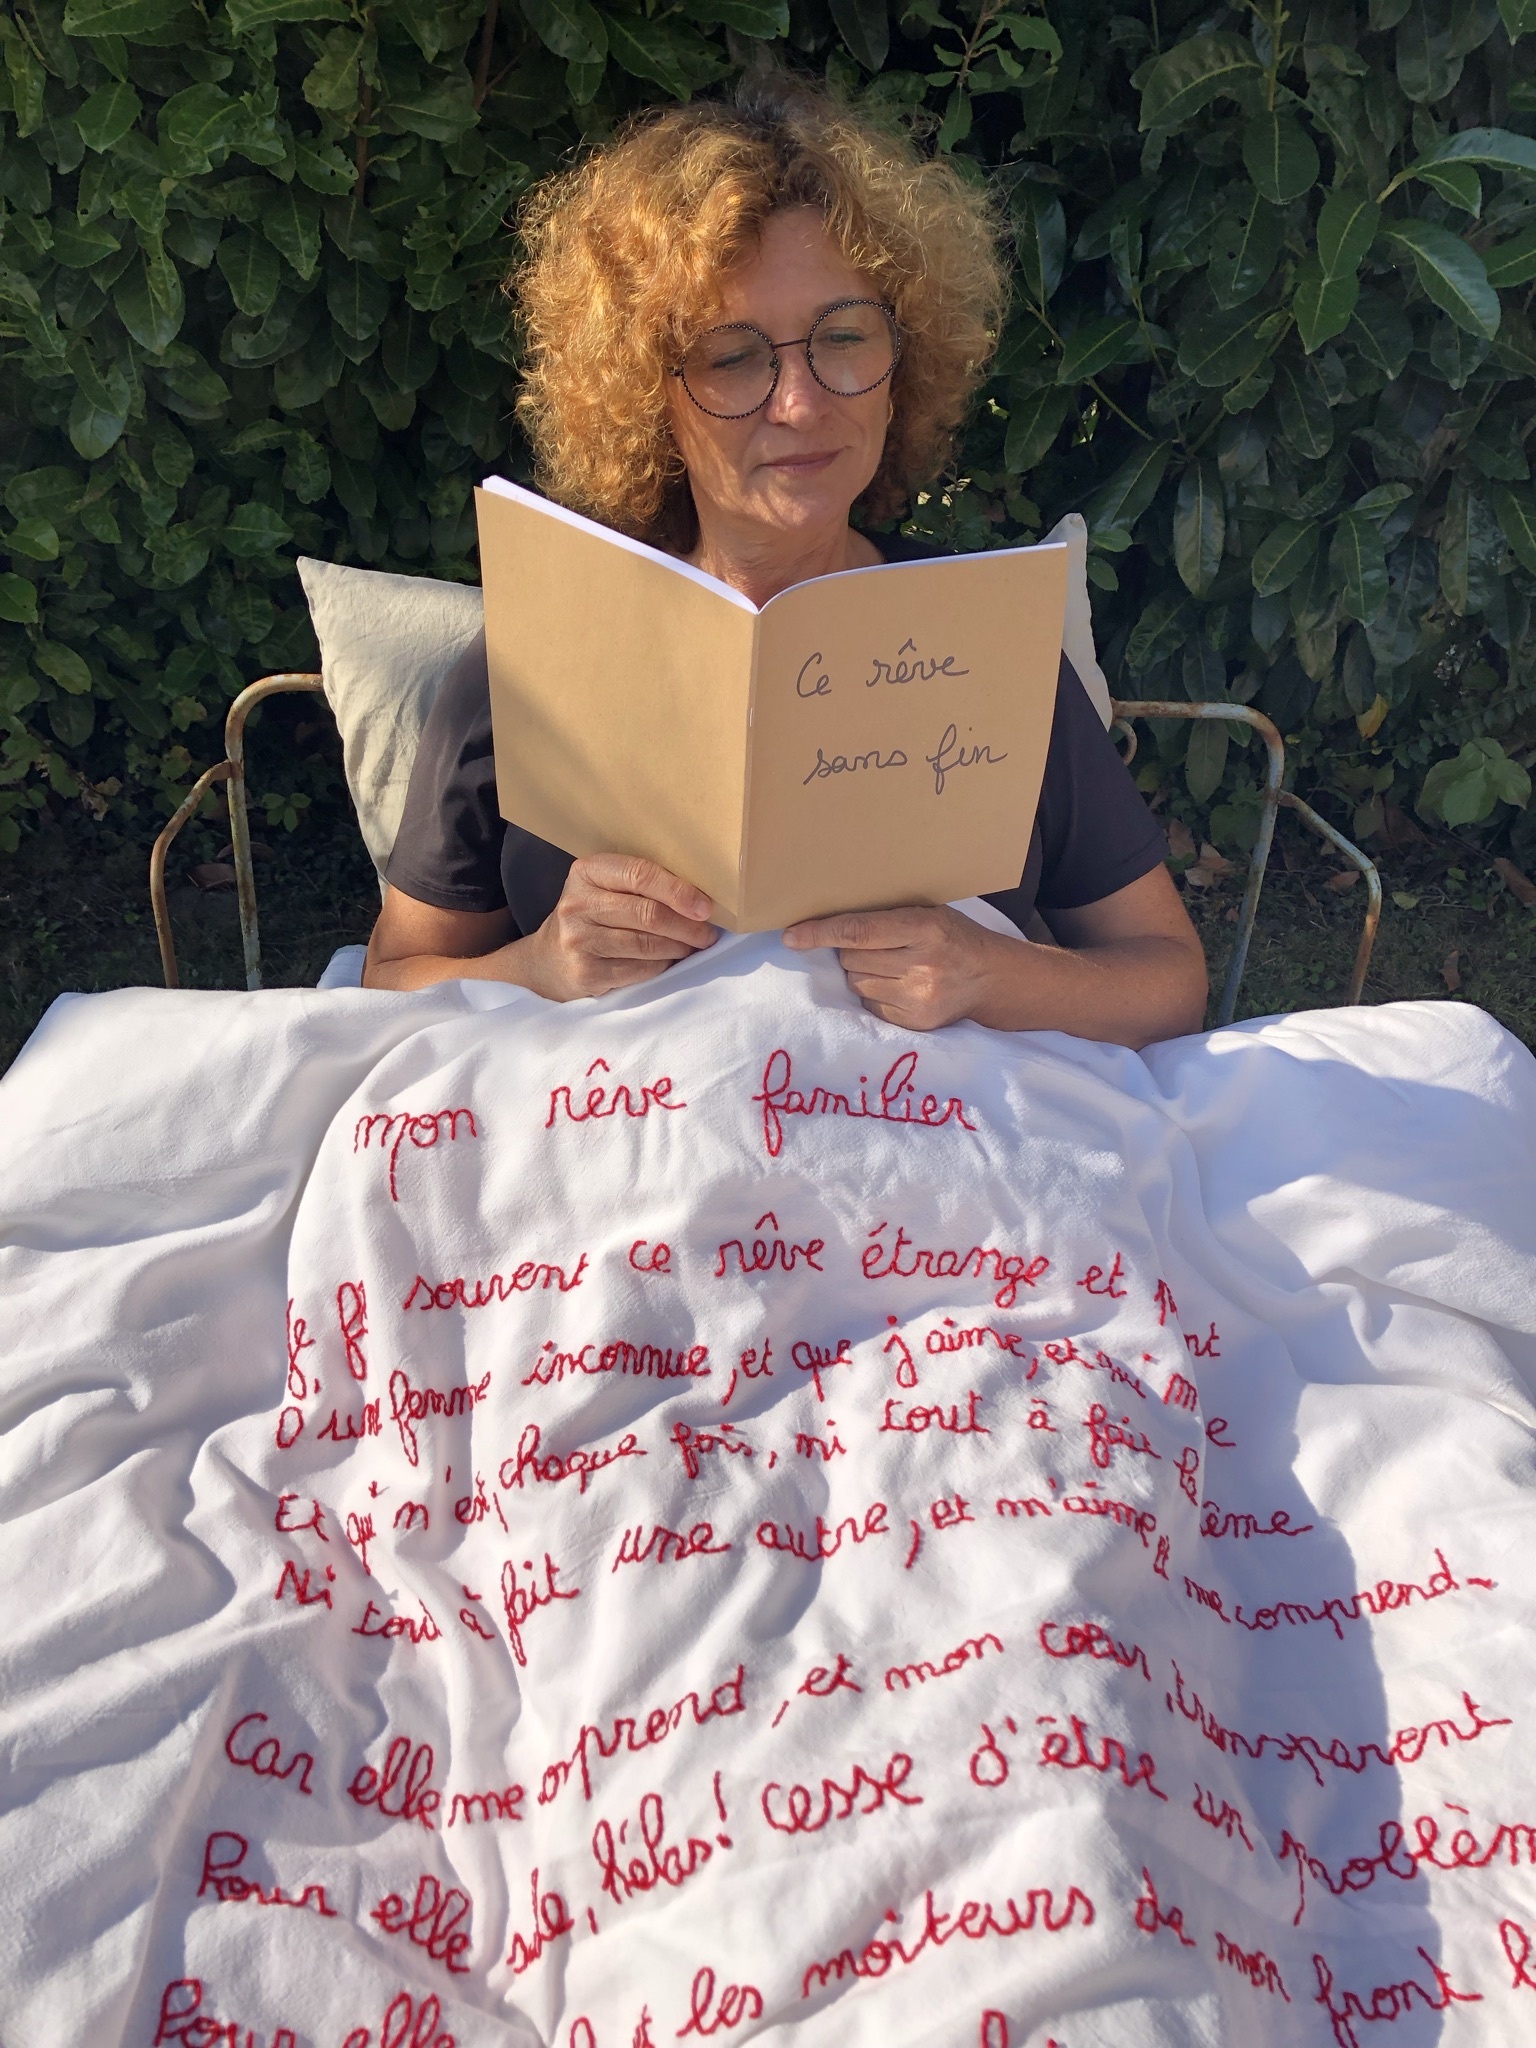 Ce rêve
sans fin
mon rêve familier
Je souvent ce rêve étrange et
femme inconnue, et que j'aime, et qui m
Et qui n'est, chaque fois, ni tout à fait la ême
Ni tout à fait une autre, et m'aime et me comprend.
Car elle me comprend, et mon cœur, transparent
Pour elle seule, hélas! cesse d'être un problèm
Pour elle et les moiteurs de mon front